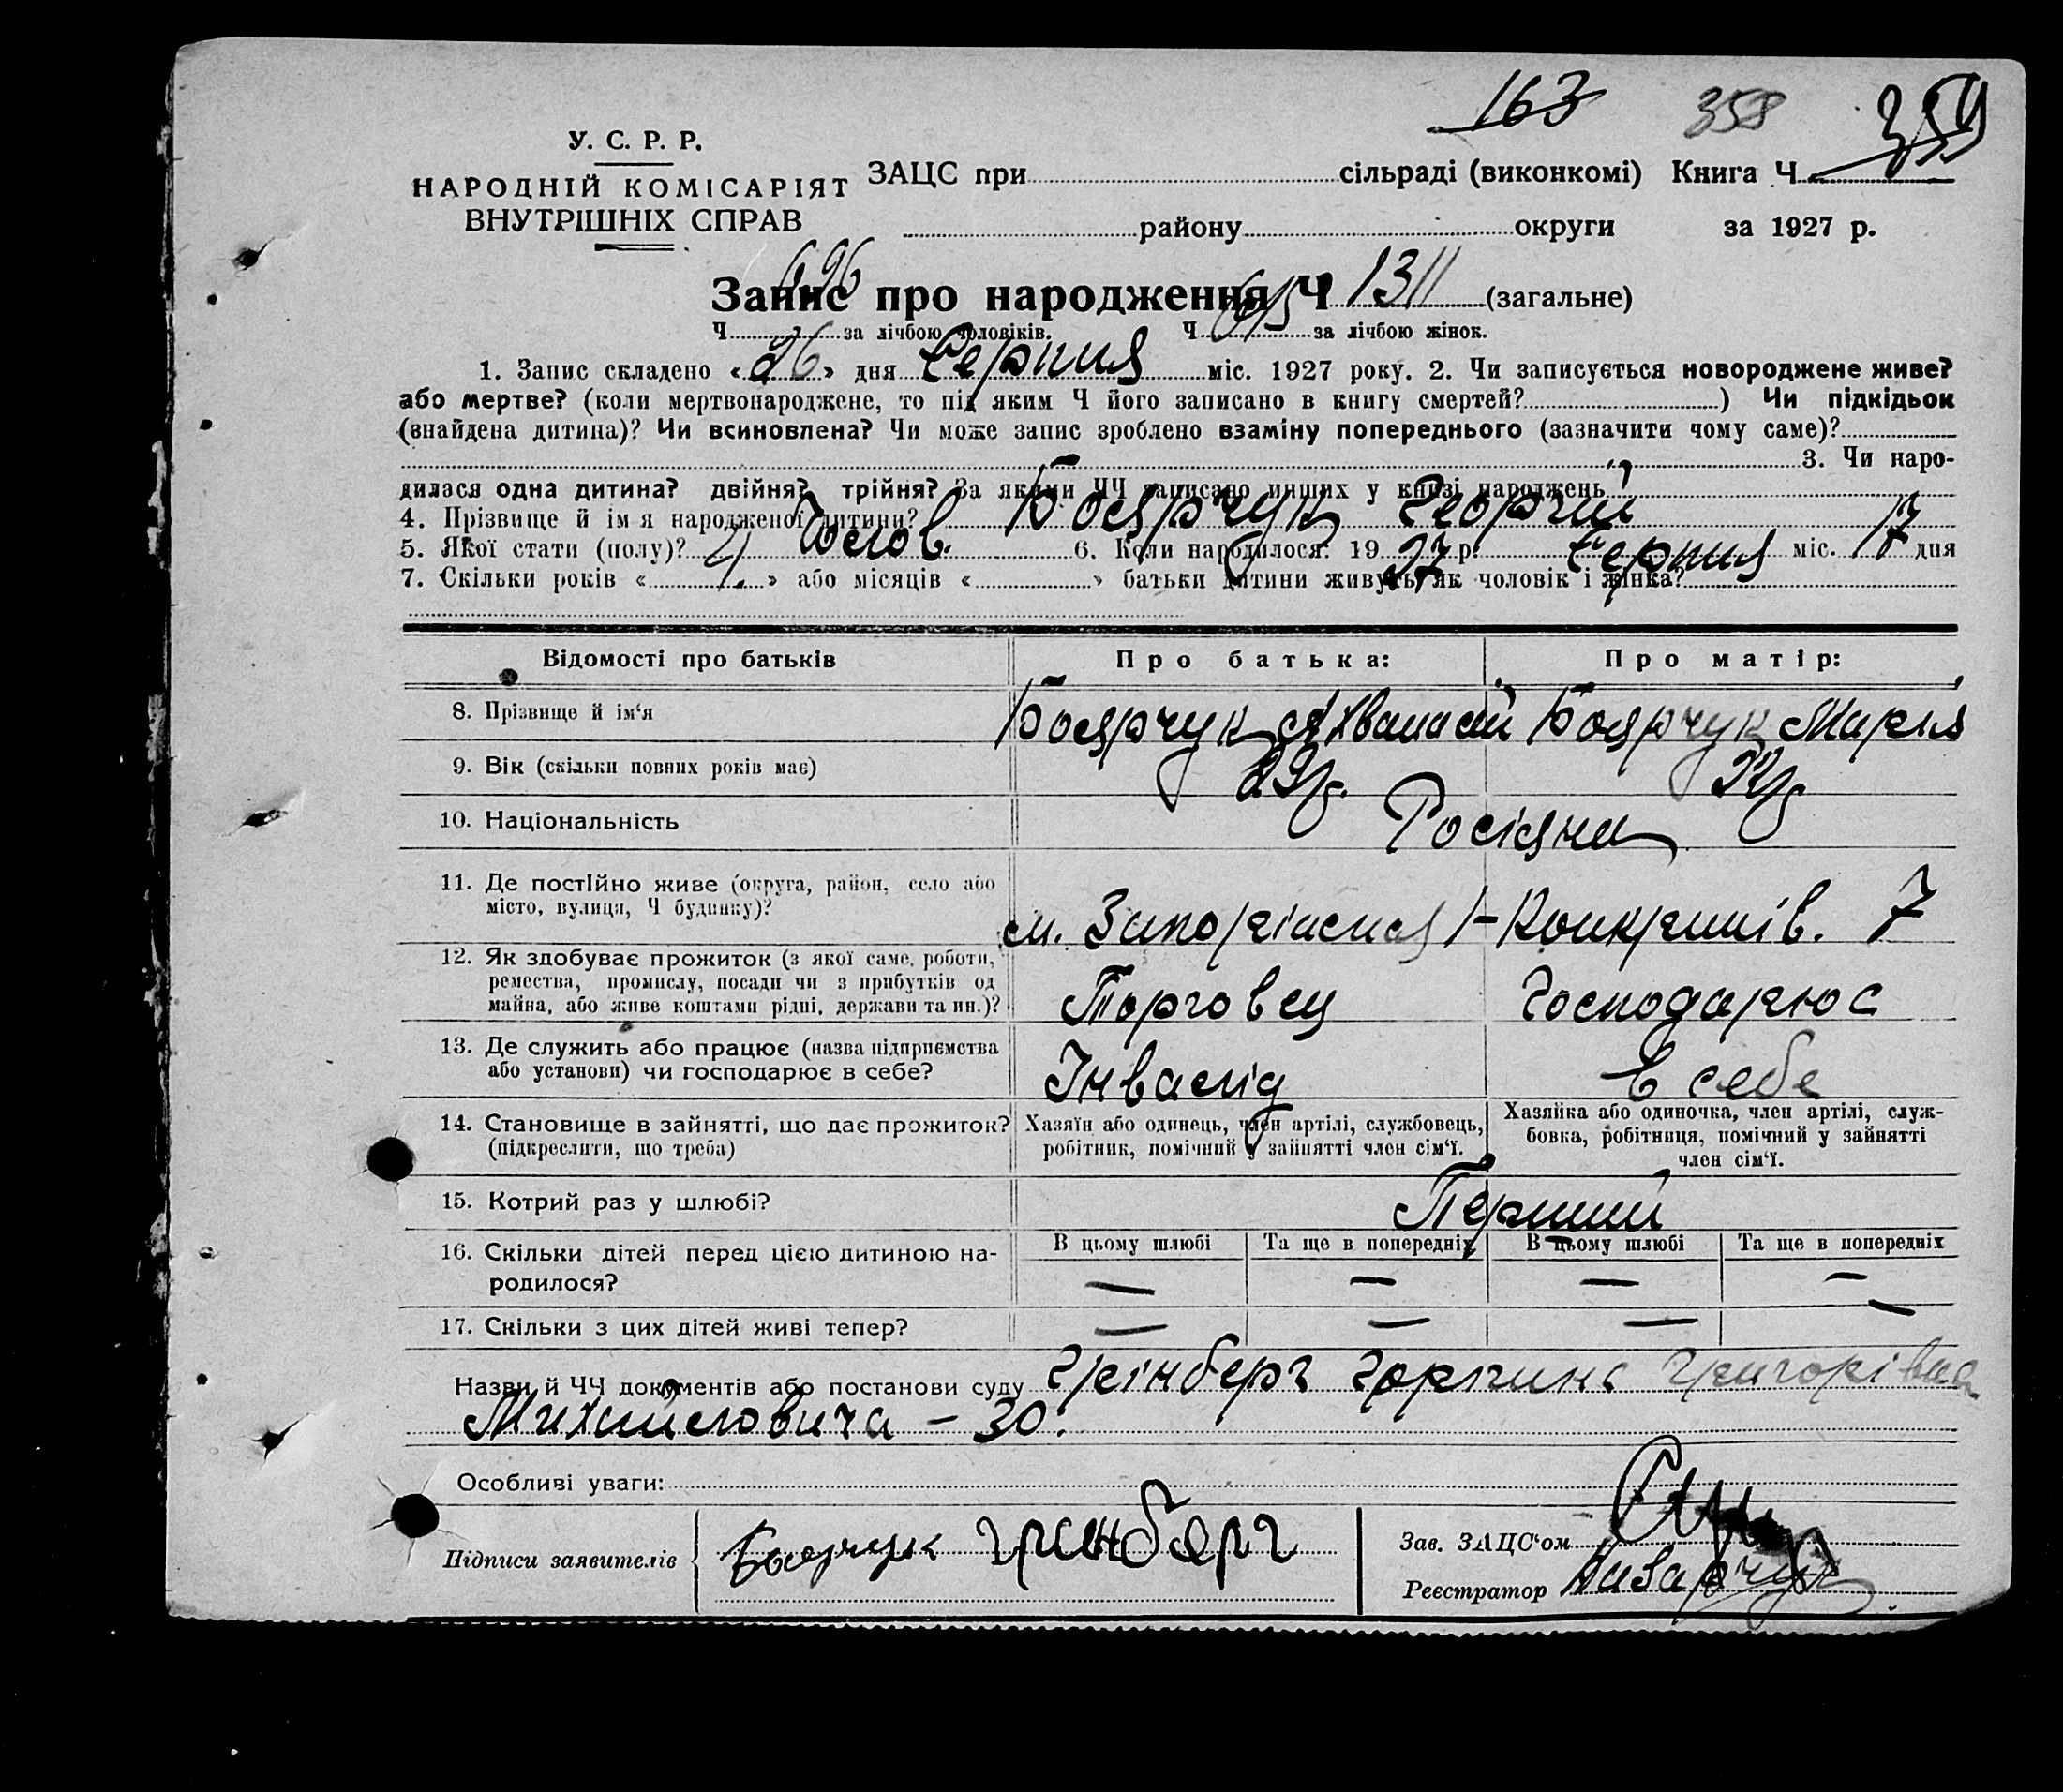 163 358 359
У. С. Р. Р.
НАРОДНІЙ КОМІСАРІЯТ
ВНУТРІШНІХ СПРАВ
ЗАЦС при сільраді (виконкомі) Книга Ч
району округи за 1927 р.
696
Запис про народження Ч 1311 (загальне)
Ч за лічбою чоловіків. Ч 615 за лічбою жінок.
1. Запис складено «26» дня Серпня міс. 1927 року. 2. Чи записується новороджене живе?
або мертве? (коли мертвонароджене, то під яким Ч його записано в книгу смертей? ) Чи підкідьок
(внайдена дитина)? Чи всиновлена? Чи може запис зроблено взаміну попереднього (зазначити чому саме)?
3. Чи наро-
дилася одна дитина? двійня? трійня? За якими ЧЧ записано инших у книзі народжень
4. Прізвище й ім я народженої дитини? Боярчук Георгій
5. Якої стати (полу)? Чолов. 6. Коли народилося: 1927 р. Серпня міс. 17 дня
7. Скільки років « » або місяців « » батьки дитини живуть як чоловік і жінка?
Відомості про батьків Про батька: Про матір:
8. Прізвище й ім‘я Боярчук Афванасій Боярчук Марія
9. Вік (скільки повних років має) 29р.
10. Національність Росіяни
11. Де постійно живе (округа, район, село або
місто, вулиця, Ч будинку)? 7
12. Як здобуває прожиток (з якої саме, роботи,
ремества, промислу, посади чи з прибутків од
майна, або живе коштами рідні, держави та ин.)? Торговец Господарює
13. Де служить або працює (назва підприємства
або установи) чи господарює в себе? Інвалід в себе
14. Становище в зайнятті, що дає прожиток?
(підкреслити, що треба)
Хазяїн або одинець, член артілі, службовець,
робітник, помічний у зайнятті член сім‘ї.
Хазяйка або одиночка, член артілі, служ-
бовка, робітниця, помічний у зайнятті
член сім‘ї.
15. Котрий раз у шлюбі? Перший
16. Скільки дітей перед цією дитиною на-
родилося?
В цьому шлюбі Та ще в попередніх В цьому шлюбі Та ще в попередніх
— — — —
17. Скільки з цих дітей живі тепер? — — — —
Назви й ЧЧ документів або постанови суду Грінберг Григорівна
Михайловича – 30.
Особливі уваги:
Підписи заявителів Боярчук Гринберг
Зав. ЗАЦС‘ом
Реєстратор